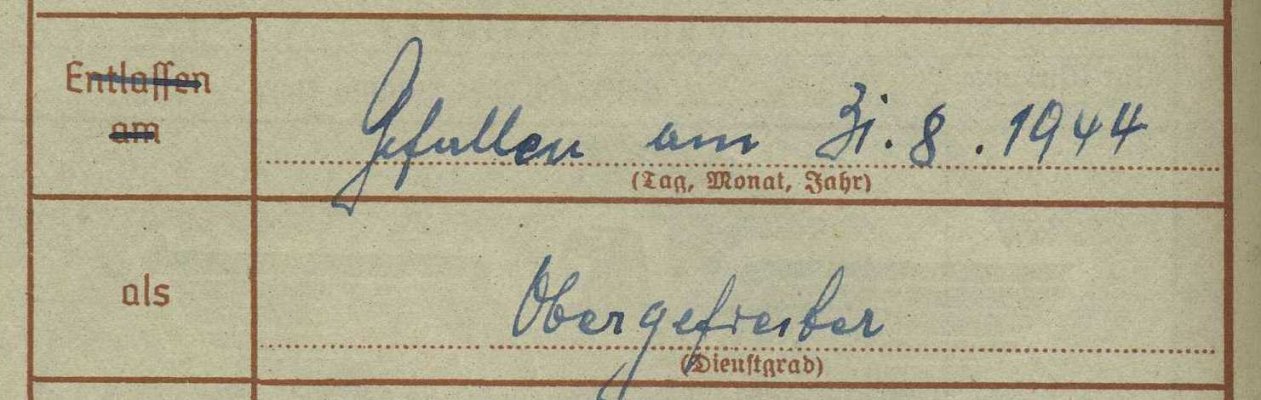 Entlassen
am
Gefallen am 31.8.1944
(Tag, Monat, Jahr)
als
Obergefreiter
(Dienstgrad)